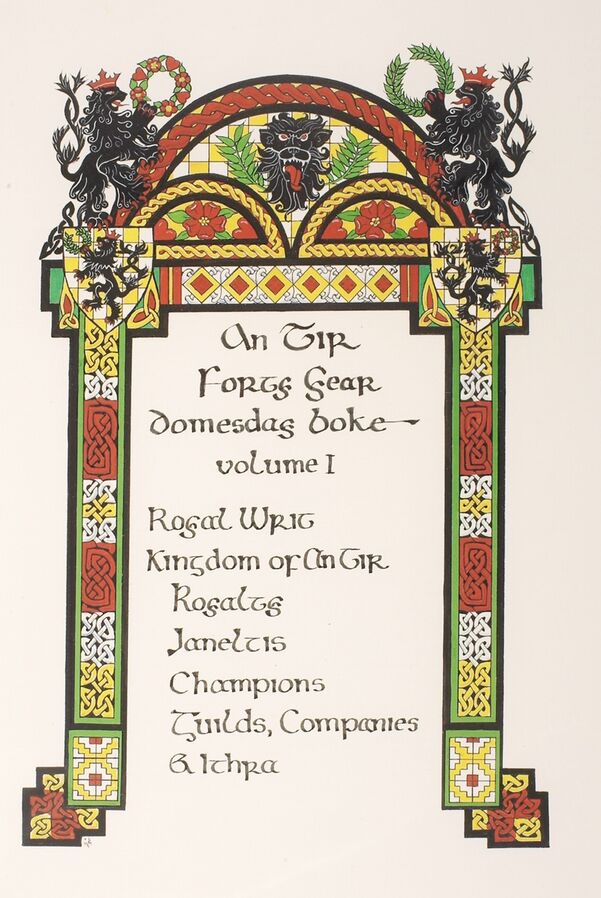 An Tir
Forty Year
domesday boke
volume I
Royal Writ
Kingdom of An Tir
Royalty
Janeltis
Champions
Guilds, Companies
& Ithra